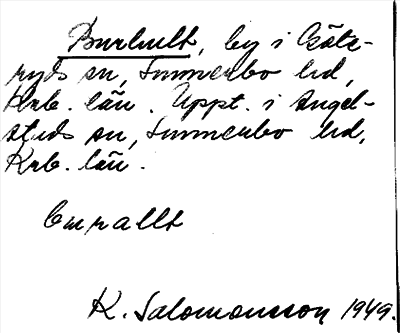 Burhult, by i Göte-
ryds sn, Sunnerbo hd,
Krb. län. Uppt. i Angel-
stads sn, Sunnerbo hd,
Krb. län.
burallt
K. Salomonsson 1949.